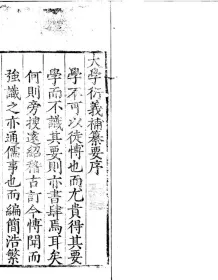 大學衍義補纂要序
學不可以徒博也而尤貴得其要
學而不識其要則亦書肆焉耳矣
何則旁搜遠紹稽古訂今博聞而
強識之亦通儒事也而編簡浩繁